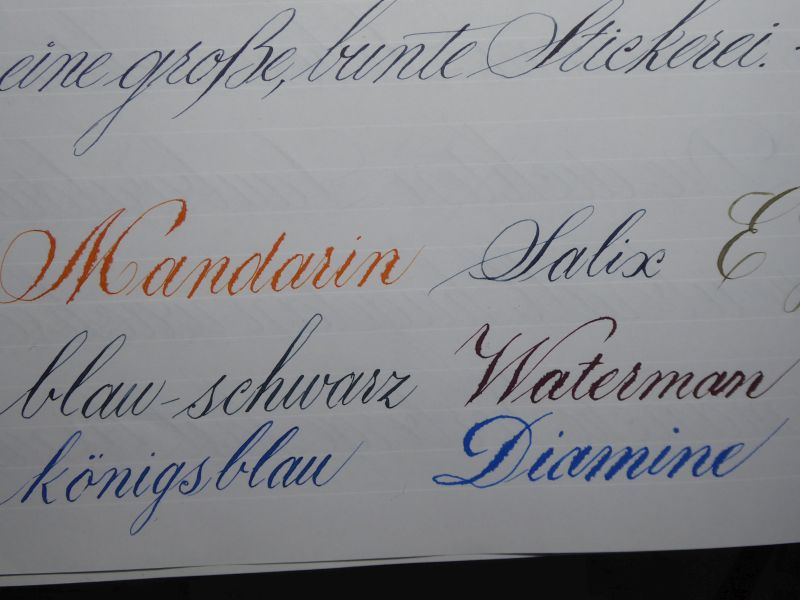 eine große, bunte Stickerei. -
Mandarin Salix E
blau-schwarz Waterman
königsblau Diamine